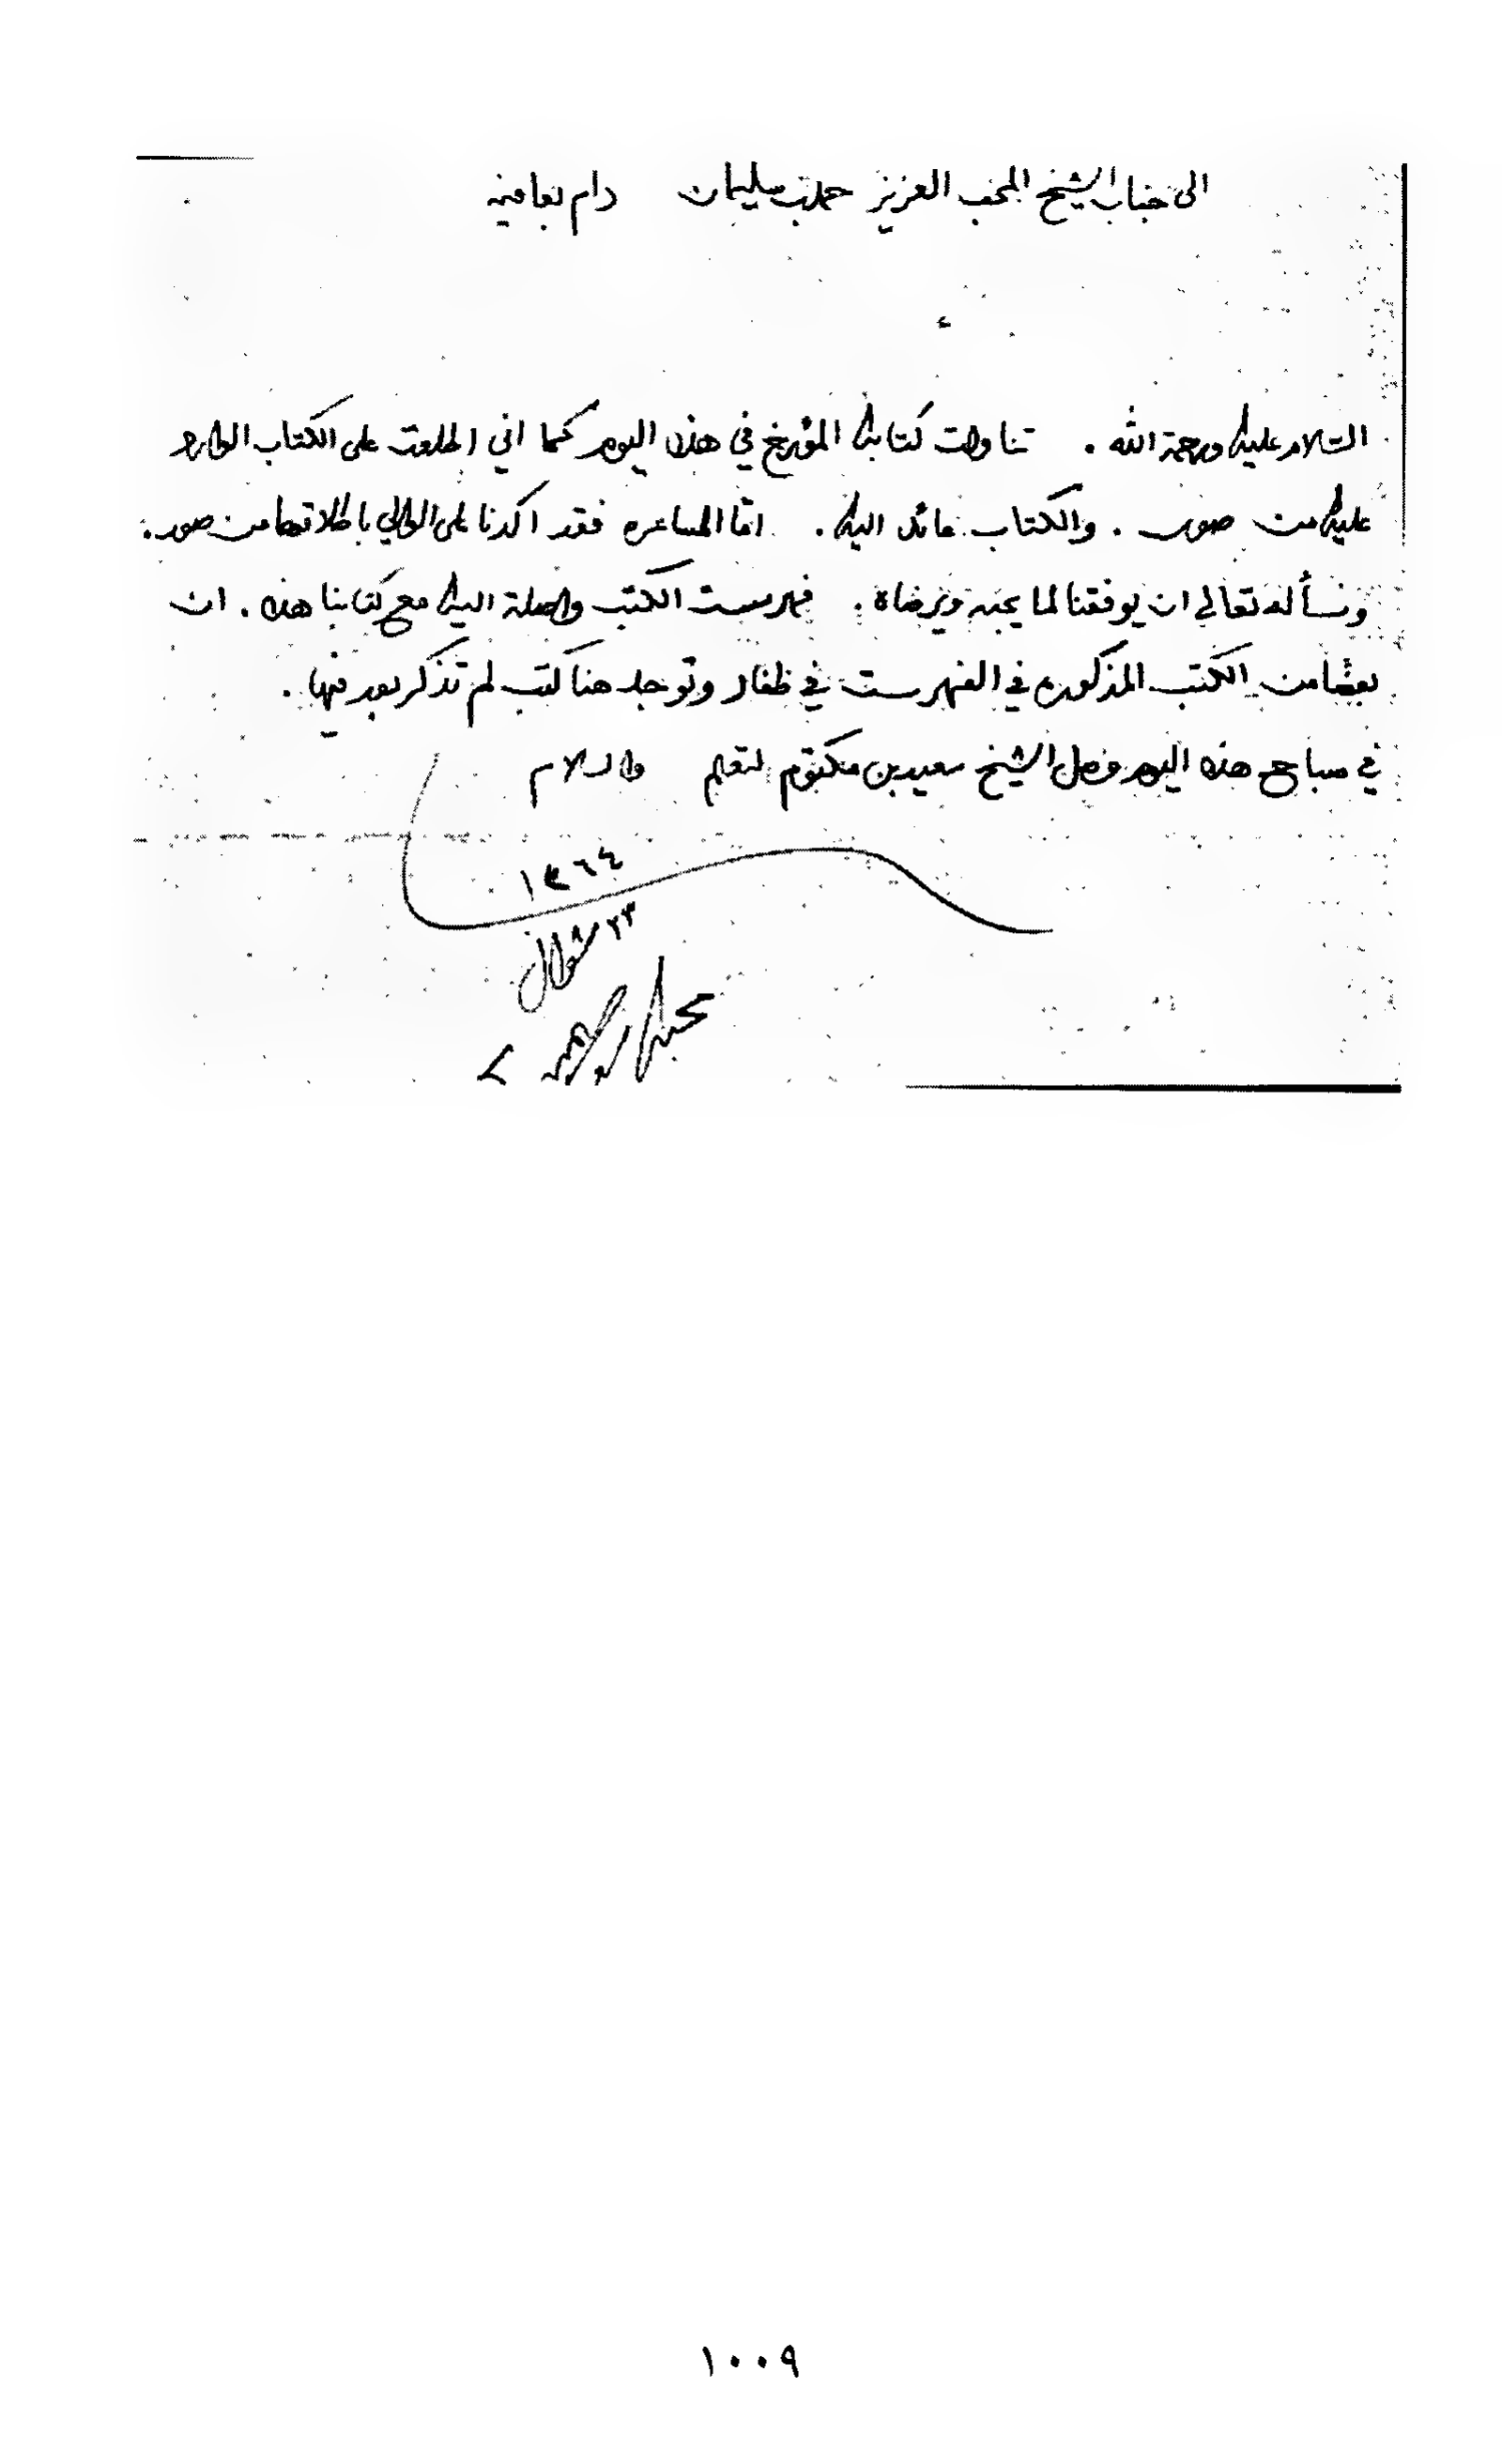 الى جناب الشيخ المحب العزيز حمد بن سليمان دام بعافيه
السلام عليك ورحمة الله . تناولت كتابك المؤرخ في هذه اليوم كما اني اطلعت على الكتاب الوارد
عليك من صور . والكتاب عائد اليك . امّا المساعره فقد اكدنا على الوالي باطلاقها من صور .
ونسأله تعالى ان يوفقنا لما يحبه ويرضاه . فهرست الكتب واصلة اليك مع كتابنا هذه . ان
بعضا من الكتب المذكوره في الفهرست في ظفار وتوجد هنا كتب لم تذكر بعد فيها .
في صباح هذه اليوم وصل الشيخ سعيد بن مكتوم لتعلم والسلام
١٣٦٤
٢٣ شوال
محبك
١٠٠٩